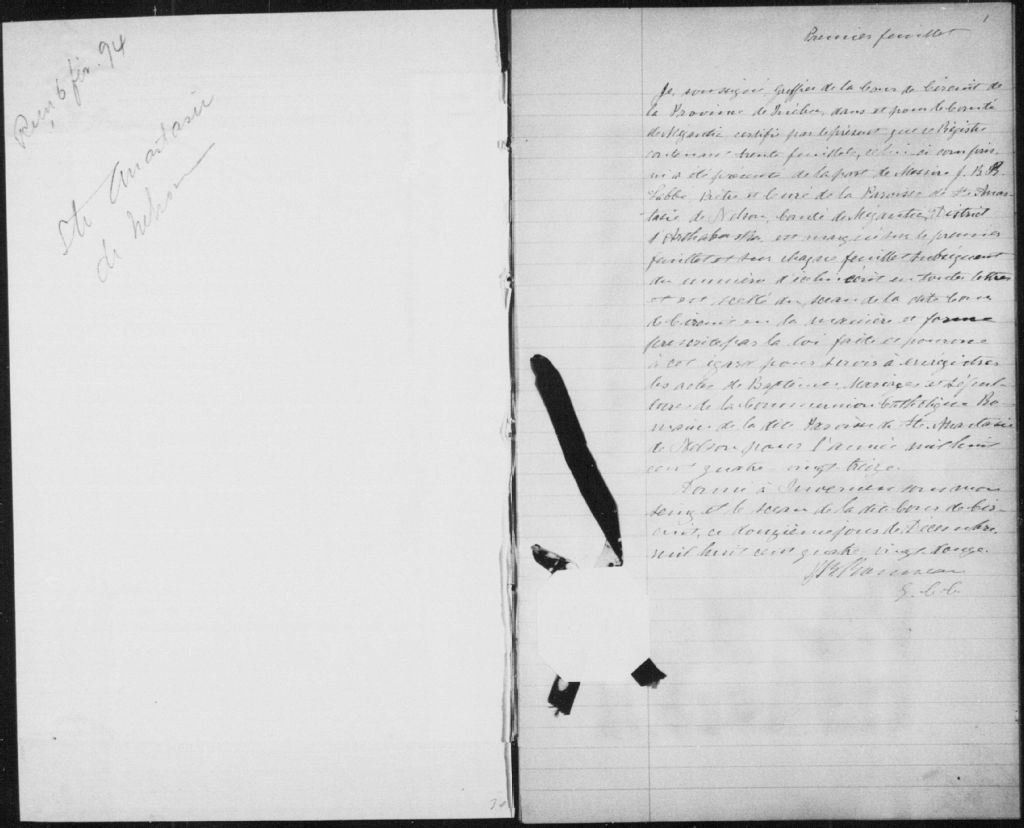 Reçu 6 fév. 94
Ste Anastasie
de Nelson
1
Premier feuillet
Je, soussigné, Greffier de la Cour de Circuit de
la Province de Québec, dans et pour le Comté
de Mégantic certifie par le présent que ce Régistre
contenant trente feuillets, celui-ci compris,
m'a été présenté de la part de Messire J. B. B.
Prêtre et Curé de la Paroisse de Ste Anas-
tasie de Nelson, Comté de Mégantic, District
d'Arthabaska, est marqué sur le premier
feuillet et sur chaque feuillet subséquent
du numéro d'icelui écrit en toutes lettres
et est scellé du sceau de la dite Cour
de Circuit en la manière et forme
prescrite par la loi faite et pourvue
à cet égard pour servir à enrégistrer
les actes de Baptêmes, Mariages et Sépul-
tures de la Communion Catholique Ro-
maine de la dite Paroisse de Ste Anastasie
de Nelson pour l'année mil huit
cent quatre vingt treize.
Donné à Inverness sous mon
seing et le sceau de la dite Cour de Cir-
cuit, ce douzième jour de Décembre
mil huit cent quatre vingt douze.
G. C. C.